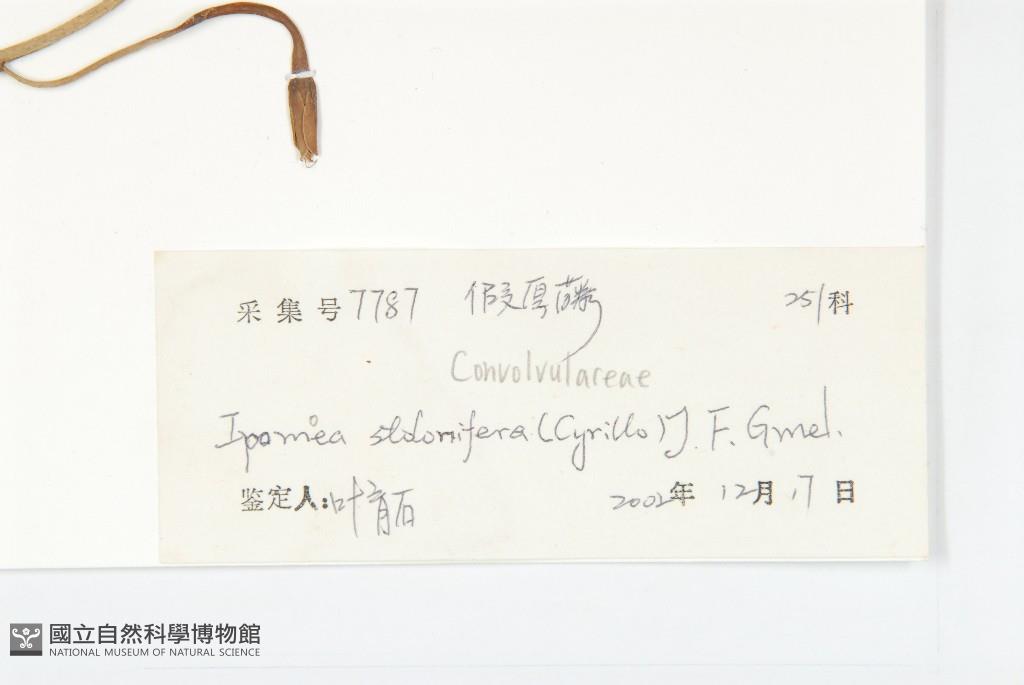 采集号7787 假厚藤 251科
Convolvulareae
Ipomoea stolonifera (Cyrillo) J. F. Gmel.
鉴定人:叶育石 2002年 12月 17日
國立自然科學博物館
NATIONAL MUSEUM OF NATURAL SCIENCE